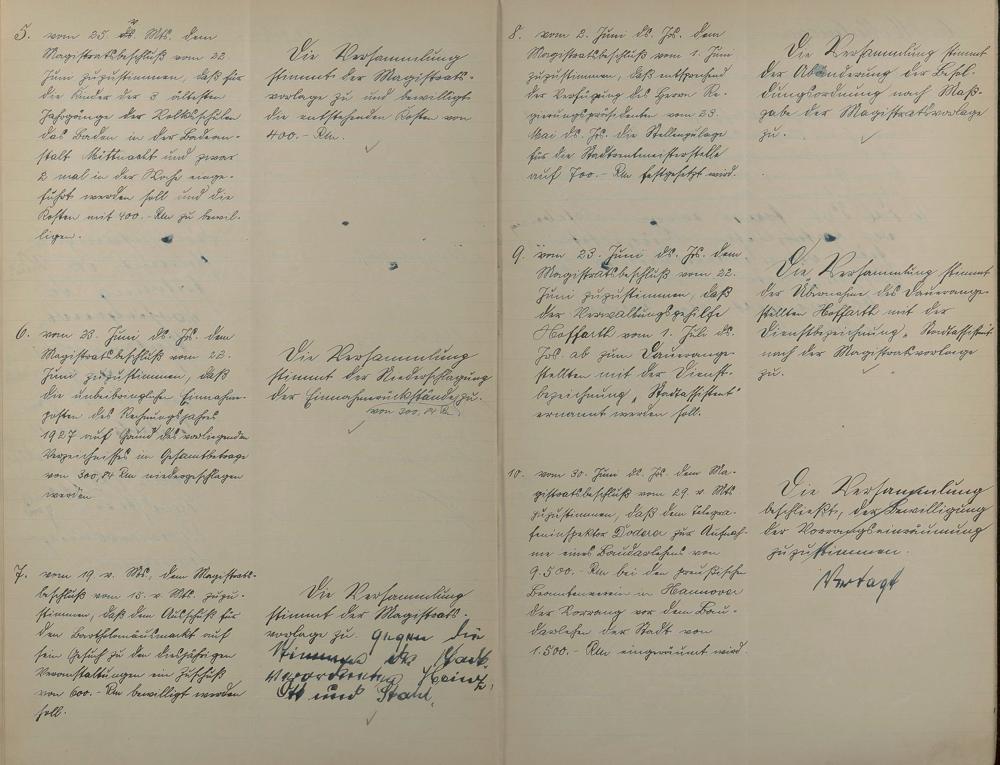 5. vom 25. ds. Mts. dem
Magistratsbeschluß vom 22.
Juni zuzustimmen, daß für
die Kinder der 3 ältesten
Jahrgänge der Volksschulen
das Baden in der Badean-
stalt Mittnacht und zwar
2 mal in der Woche einge-
führt werden soll und die
Kosten mit 400.- Rm zu bewil-
ligen.
Die Versammlung
stimmt der Magistrats-
vorlage zu und bewilligt
die entstehenden Kosten von
400.- Rm.
6. vom 23. Juni ds. Js. dem
Magistratsbeschluß vom 22.
Juni zuzustimmen, daß
die unbeibringliche Einnahme-
posten des Rechnungsjahres
1927 auf Grund des vorliegenden
Verzeichnisses im Gesamtbetrage
von 300,84 Rm niedergeschlagen
werden
Die Versammlung
stimmt der Niederschlagung
der Einnahmerückstände zu.
von 300,84 Rm
7. vom 19. v. Mts. dem Magistrats-
beschluß vom 15. v. Mts. zuzu-
stimmen, daß dem Ausschuß für
den Bartholomäusmarkt auf
sein Gesuch zu den diesjährigen
Veranstaltungen ein Zuschuß
von 600.- Rm bewilligt werden
soll.
Die Versammlung
stimmt der Magistrats-
vorlage zu. gegen die
Stimmen der Stadt-
verordneten Heinz,
Ott und Stahl.
8. vom 2. Juni ds. Js. dem
Magistratsbeschluß vom 1. Juni
zuzustimmen, daß entsprechend
der Verfügung des Herrn Re-
gierungspräsidenten vom 23.
Mai ds. Js. die Stellenzulage
für die Stadtrentmeisterstelle
auf 700.- Rm festgesetzt wird.
Die Versammlung stimmt
der Abänderung der Besol-
dungsordnung nach Maß-
gabe der Magistratsvorlage
zu.
9. vom 23. Juni ds. Js. dem
Magistratsbeschluß vom 22.
Juni zuzustimmen, daß
der Verwaltungsgehilfe
Hoffarth vom 1. Juli ds.
Js. ab zum Dauerange-
stellten mit der Dienst-
bezeichnung „Stadtassistent"
ernannt werden soll.
Die Versammlung stimmt
der Übernahme des Dauerange-
stellten Hoffarth mit der
Dienstbezeichnung „Stadtassistent
nach der Magistratsvorlage
zu.
10. vom 30. Juni ds. Js. dem Ma-
gistratsbeschluß vom 29. v. Mts
zuzustimmen, daß dem Telegra-
feninspektor Dodera zur Aufnah-
me eines Baudarlehens von
9.500.- Rm bei den preußische
Beamtenverein in Hannover
der Vorrang vor dem Bau-
darlehen der Stadt von
1.500.- Rm eingeräumt wird.
Die Versammlung
beschließt, der Bewilligung
der Vorrangseinräumung
zuzustimmen.
Vertagt